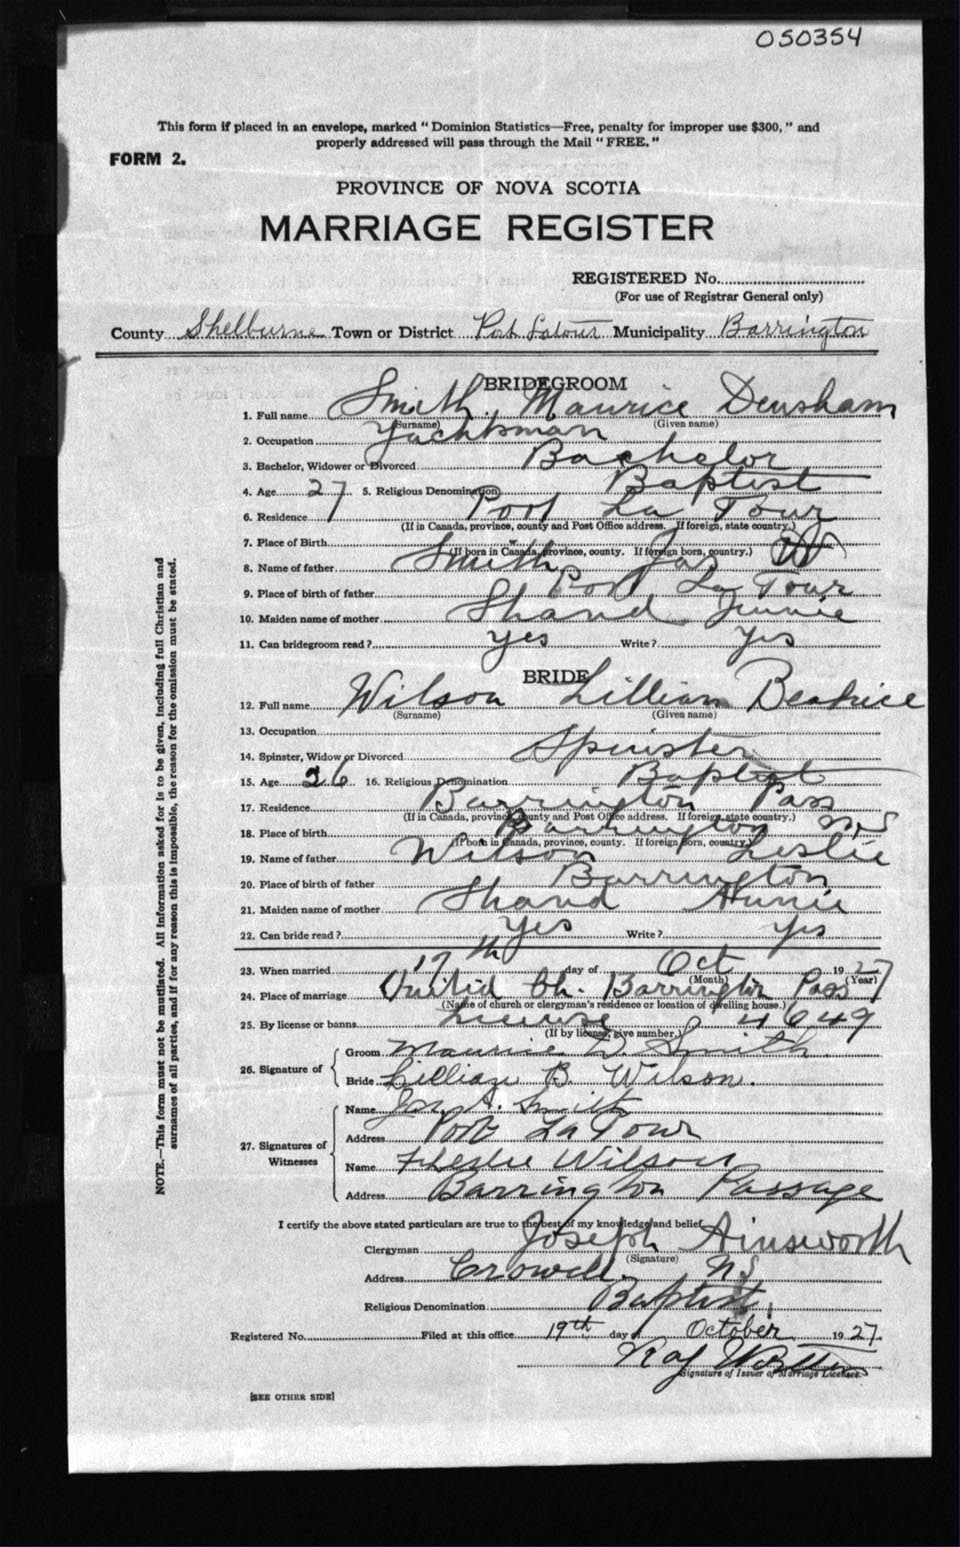 050354
This form if placed in an envelope, marked "Dominion Statistics—Free, penalty for improper use $300," and
properly addressed will pass through the Mail "FREE."
FORM 2.
PROVINCE OF NOVA SCOTIA
MARRIAGE REGISTER
REGISTERED No.
(For use of Registrar General only)
County Shelburne Town or District Port Latour Municipality Barrington
BRIDEGROOM
1. Full name Smith, Maurice Densham
(Surname) (Given name)
2. Occupation Yachtsman
3. Bachelor, Widower or Divorced Bachelor
4. Age 27 5. Religious Denomination Baptist
6. Residence Port La Tour
(If in Canada, province, county and Post Office address. If foreign, state country.)
7. Place of Birth "
(If born in Canada, province, county. If foreign born, country.)
8. Name of father Smith Jas
9. Place of birth of father Port La Tour
10. Maiden name of mother Shand Jennie
11. Can bridegroom read? yes Write? yes
BRIDE
12. Full name Wilson Lillian Beatrice
(Surname) (Given name)
13. Occupation
14. Spinster, Widow or Divorced Spinster
15. Age 26 16. Religious Denomination Baptist
17. Residence Barrington Pass
(If in Canada, province, county and Post Office address. If foreign, state country.)
18. Place of birth Barrington N.S
(If born in Canada, province, county. If foreign born, country.)
19. Name of father Wilson Leslie
20. Place of birth of father Barrington
21. Maiden name of mother Shand Annie
22. Can bride read? yes Write? yes
23. When married 17th day of Oct 1927
(Month) (Year)
24. Place of marriage United Ch. Barrington Pass
(Name of church or clergyman's residence or location of dwelling house.)
25. By license or banns License 4649
(If by license, give number.)
26. Signature of
Groom Maurice D. Smith
Bride Lillian B. Wilson.
27. Signatures of Witnesses
Name Jas. A. Smith
Address Port La Tour
Name Leslie Wilson
Address Barrington Passage
I certify the above stated particulars are true to the best of my knowledge and belief.
Clergyman Joseph Ainsworth
(Signature)
Address Crowell, N S
Religious Denomination Baptist
Registered No. Filed at this office 19th day of October 1927.
Signature of Issuer of Marriage Licenses.
[SEE OTHER SIDE]
NOTE.—This form must not be mutilated. All information asked for is to be given, including full Christian and
surnames of all parties, and if for any reason this is impossible, the reason for the omission must be stated.